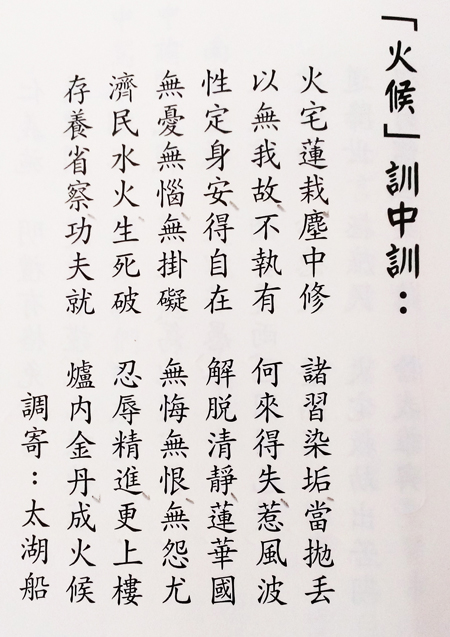 「火候」訓中訓：
火宅蓮栽塵中修　諸習染垢當拋丟
以無我故不執有　何來得失惹風波
性定身安得自在　解脫清靜蓮華國
無憂無惱無掛礙　無悔無恨無怨尤
濟民水火生死破　忍辱精進更上樓
存養省察功夫就　爐內金丹成火候
調寄：太湖船